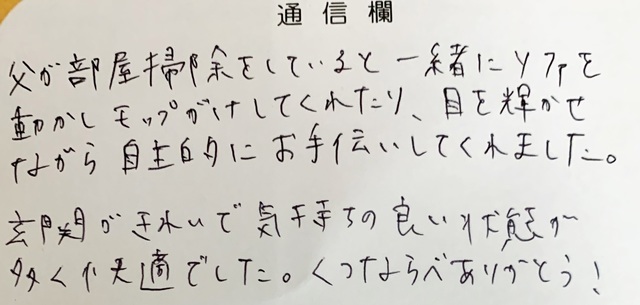 通信欄
父が部屋掃除をしていると一緒にソファを
動かしモップがけしてくれたり、目を輝かせ
ながら自主的にお手伝いしてくれました。
玄関がきれいで気持ちの良い状態が
多く快適でした。くつならべありがとう!